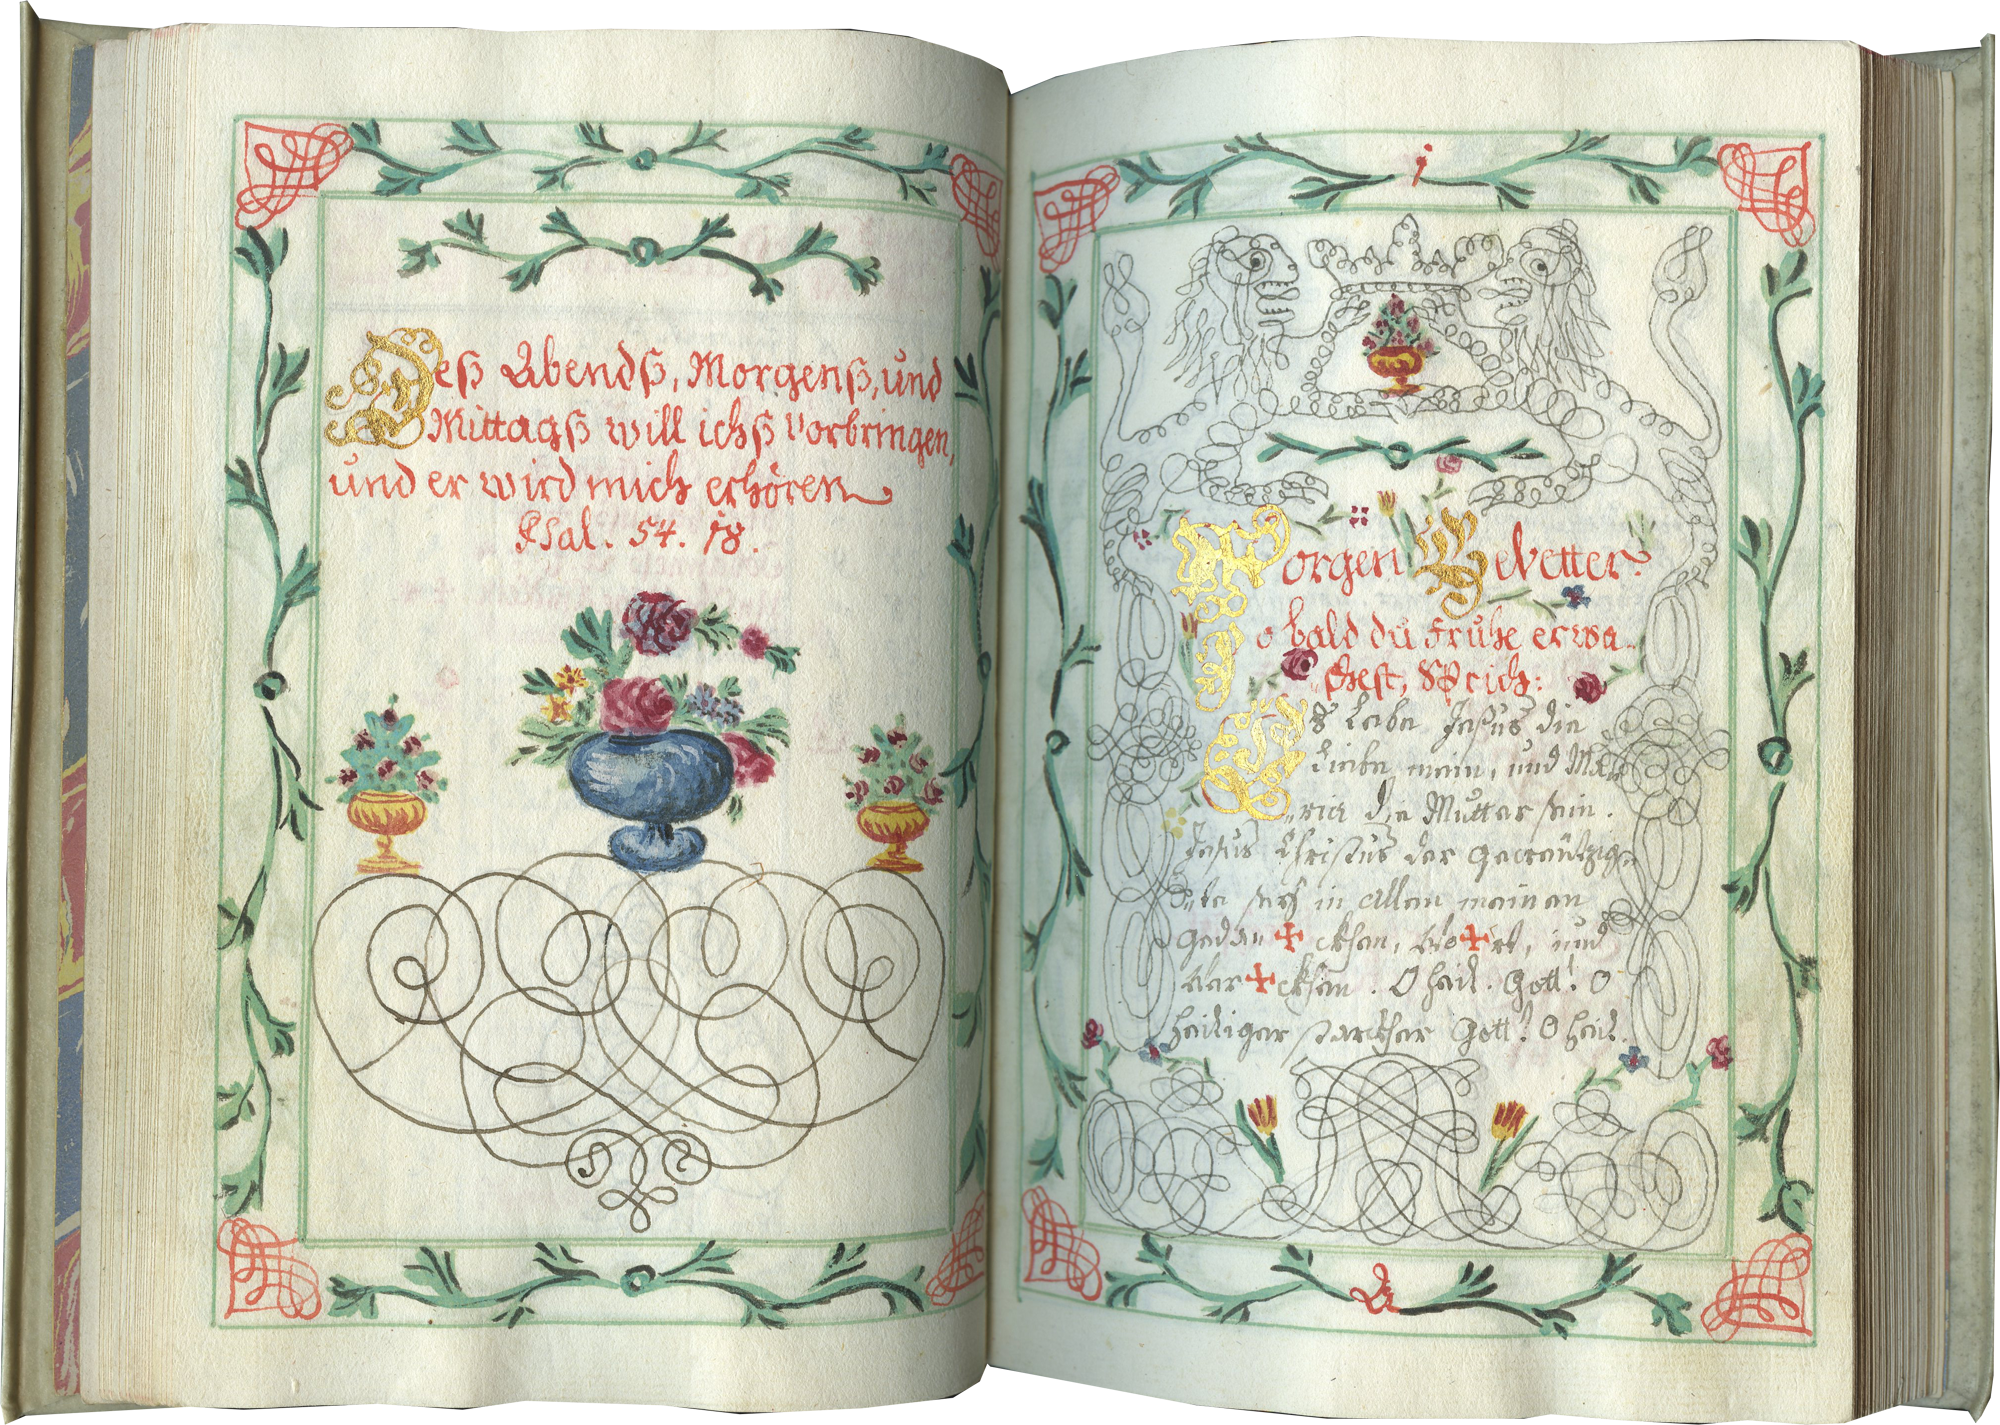 Deß Abendß, Morgenß, und
Mittagß will ichß vorbringen,
und er wird mich erhören
Psal. 54. 18.
i
Morgen Gebetter.
So bald du fruhe erwa„
„chest, Sprich:
Es lebe Jesus, die
Liebe mein, und Ma„
„ria die Mutter sein.
Jesus Christus der gecreützig„
„te seÿ in allen meinen
Gedan✠cken, Wo✠rt, und
Wer✠cken. O heil. Gott! O
heiliger starcker Gott! O heil.
A